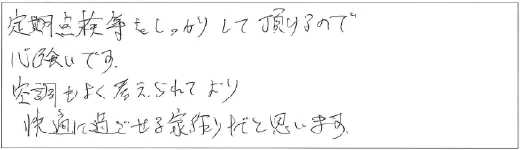 定期点検等をしっかりして頂けるので
心強いです。
空調もよく考えられており
快適に過ごせる家作りだと思います。